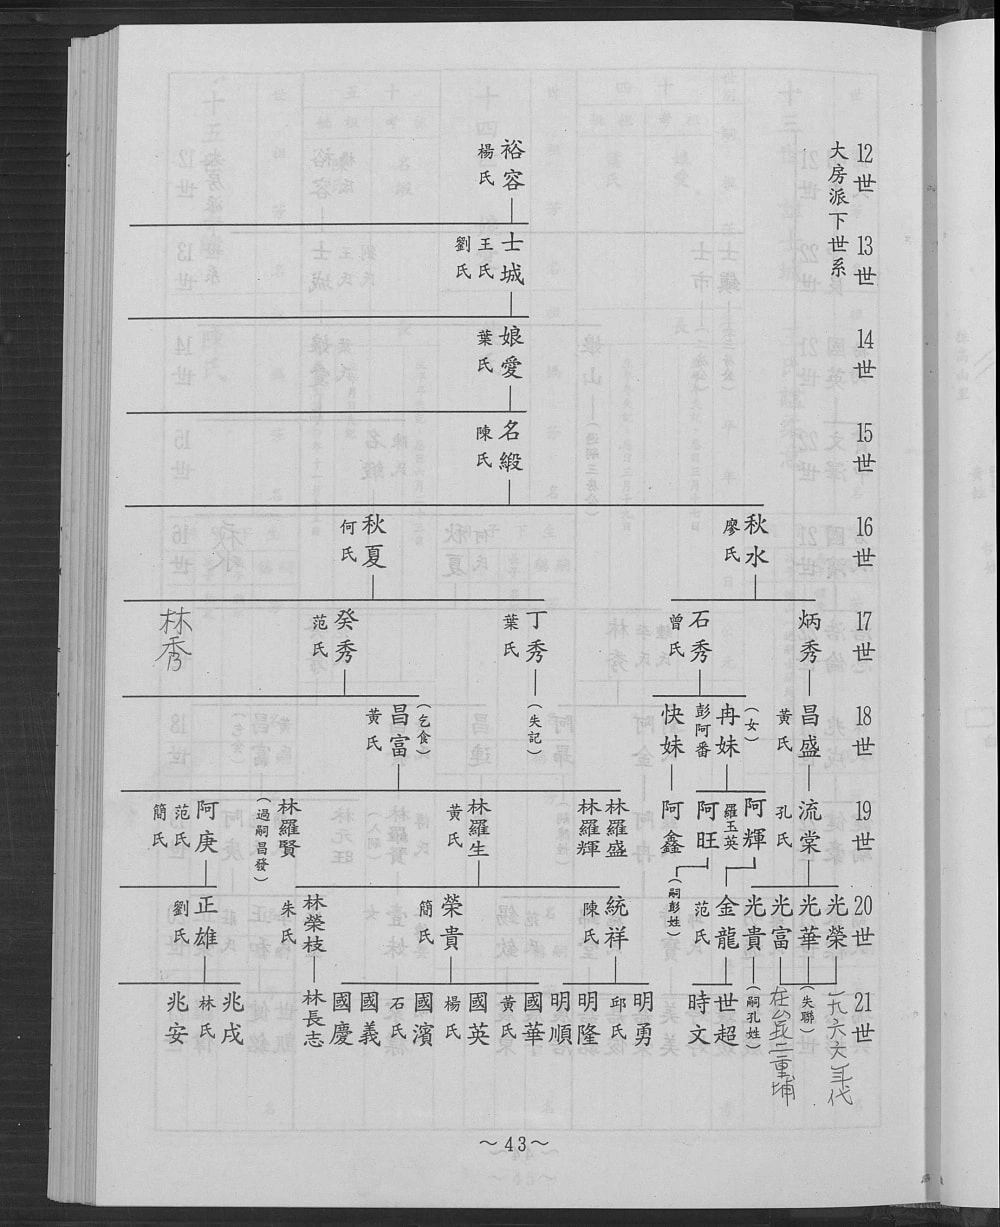 大房派下世系
12世
裕容
楊氏
13世
士城
王氏
劉氏
14世
娘愛
葉氏
15世
名緞
陳氏
16世
秋水
廖氏
秋夏
何氏
17世
炳秀
石秀
曾氏
丁秀
葉氏
癸秀
范氏
林秀
18世
昌盛
黃氏
(女)
冉妹
彭阿番
快妹
(失記)
(乞食)
昌富
黃氏
19世
流棠
孔氏
阿輝
羅玉英
阿旺
阿鑫
(嗣彭姓)
林羅盛
林羅輝
林羅生
黃氏
林羅賢
(過嗣昌發)
阿庚
范氏
簡氏
20世
光榮
光華
光富
光貴
金龍
范氏
統祥
陳氏
榮貴
簡氏
林榮枝
朱氏
正雄
劉氏
21世
一九六六年代
(失聯)
在台北二重埔
(嗣孔姓)
世超
時文
明勇
邱氏
明隆
明順
國華
黃氏
國英
楊氏
國濱
石氏
國義
國慶
林長志
兆戌
林氏
兆安
～43～